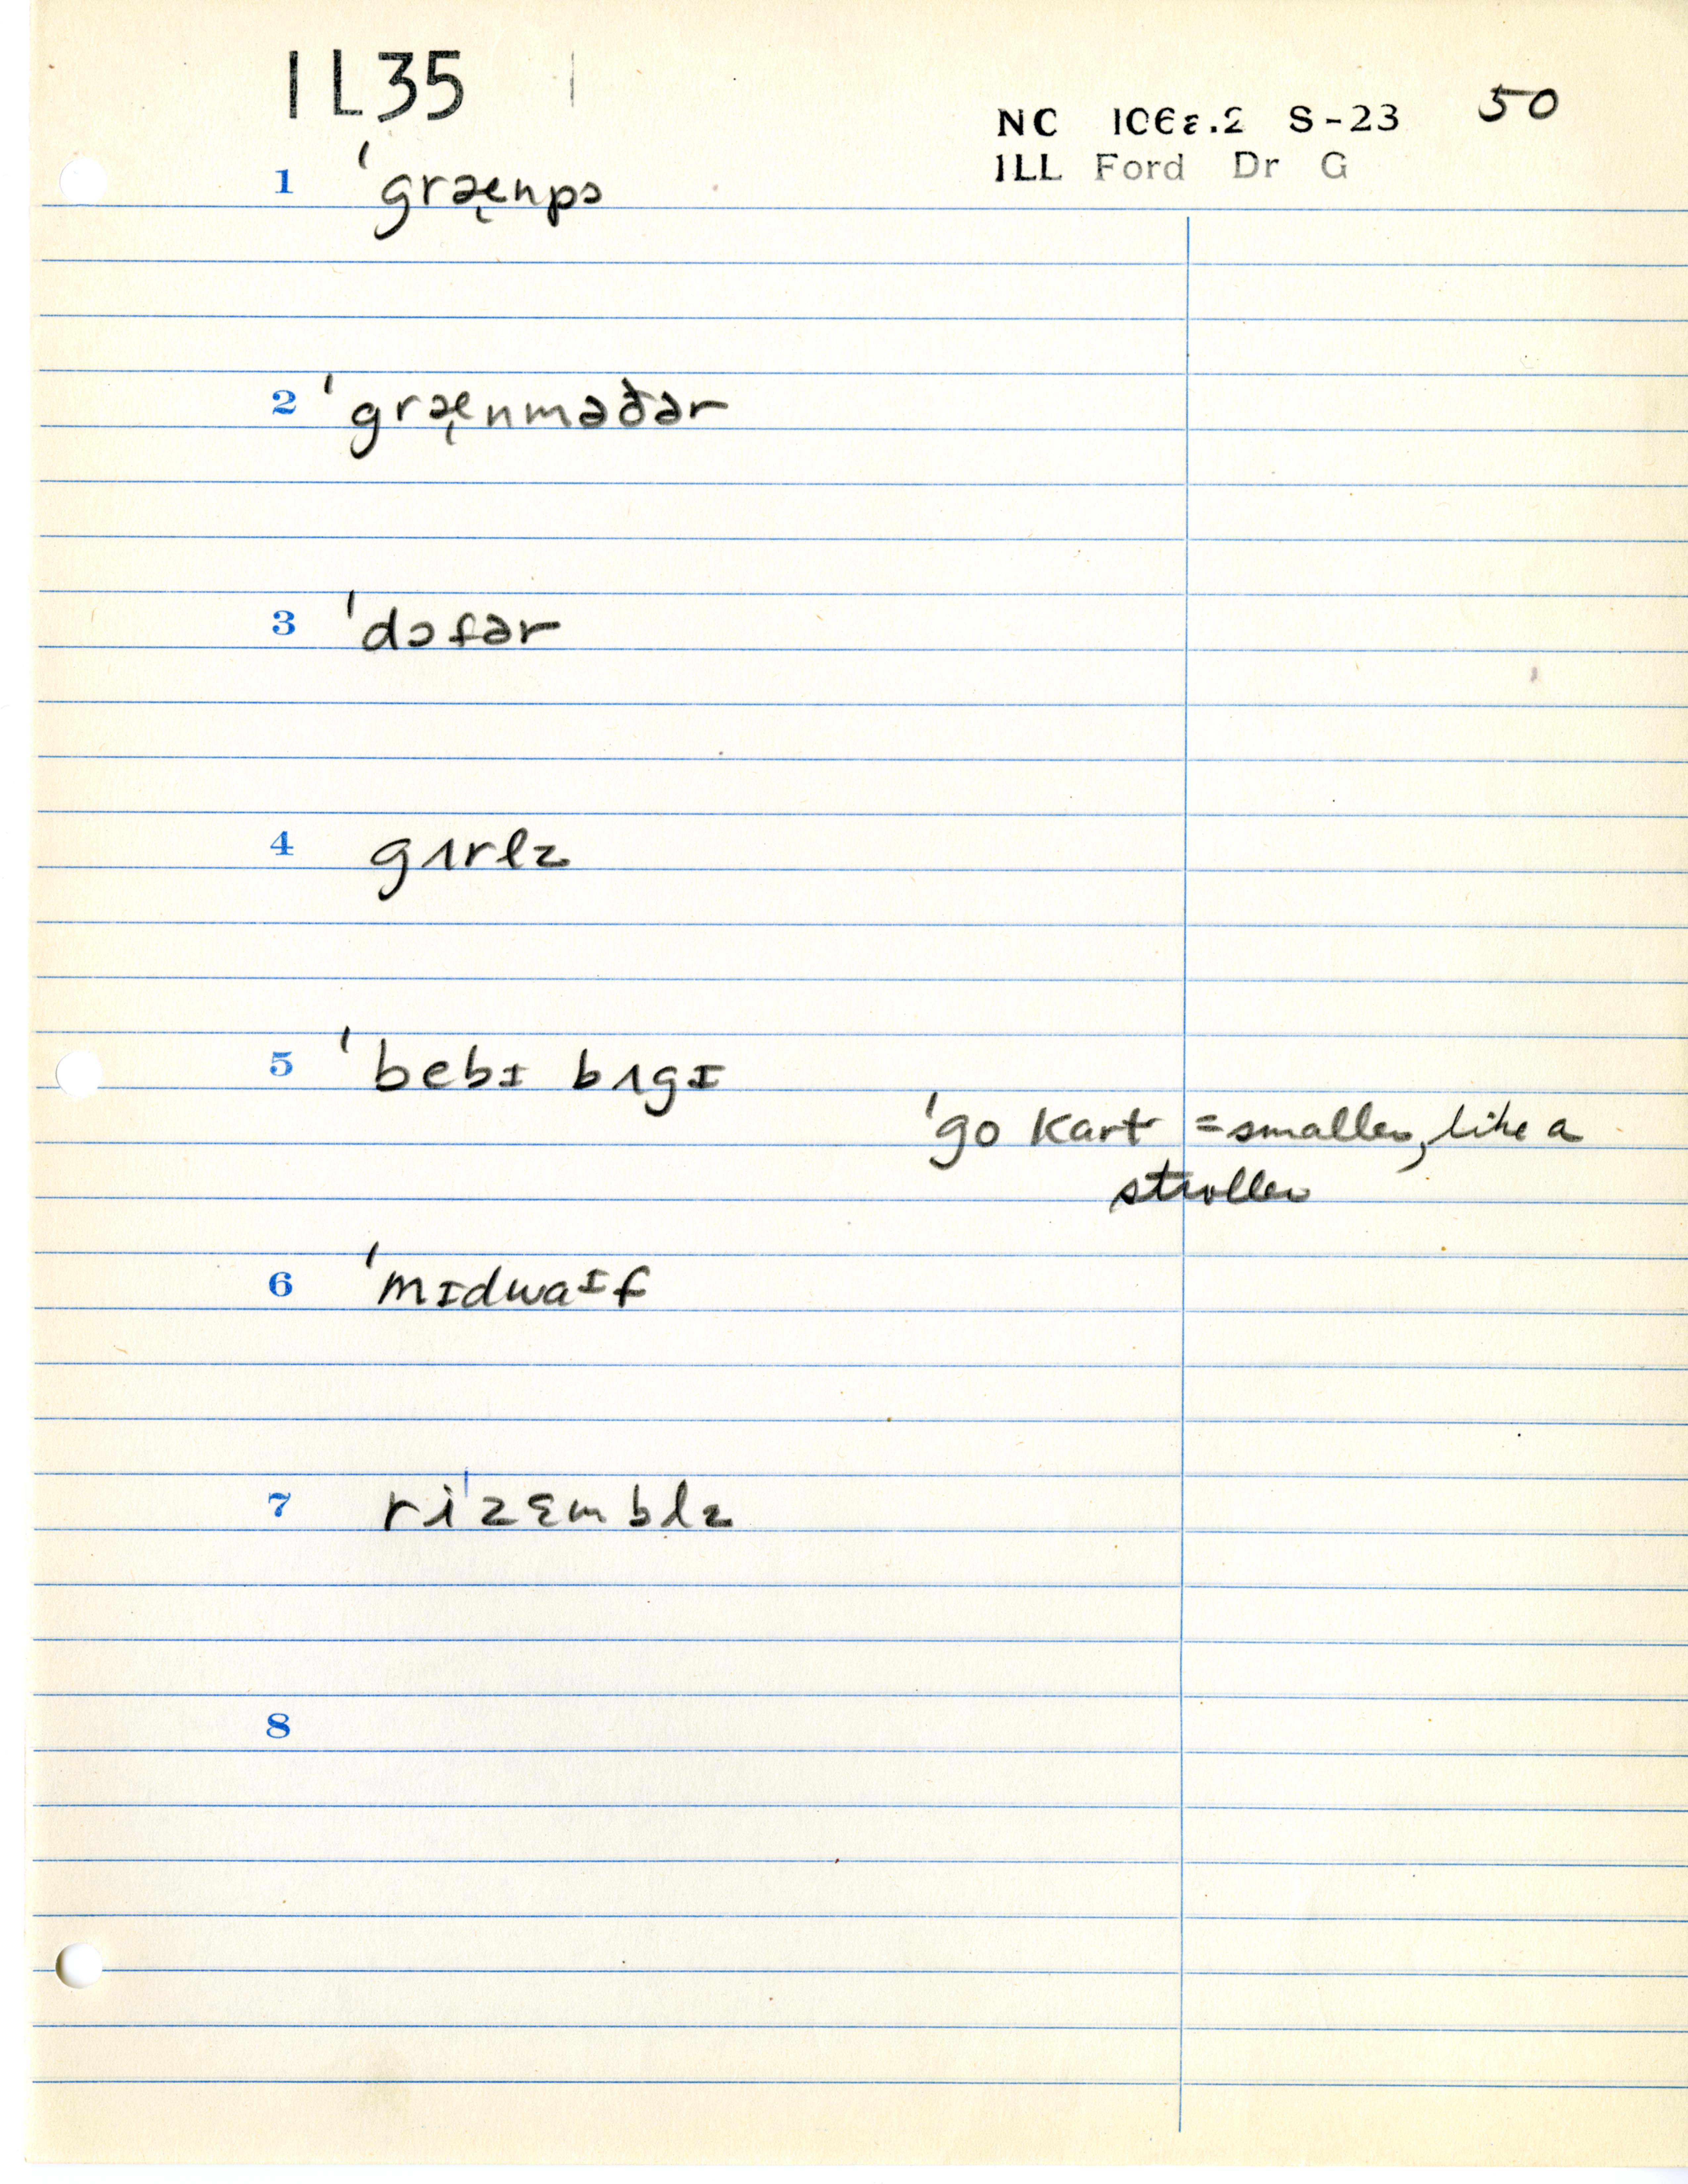 IL35
50
NC 106ε.2 S-23
ILL Ford Dr G
1 'græ̨npɔ
2 'græ̨nməðər
3 'dɔfər
4 gʌrlz
5 'bebɪ bʌgɪ
'go kart = smaller, like a
stroller
6 'mɪdwaɪf
7 ri'zɛmblz
8